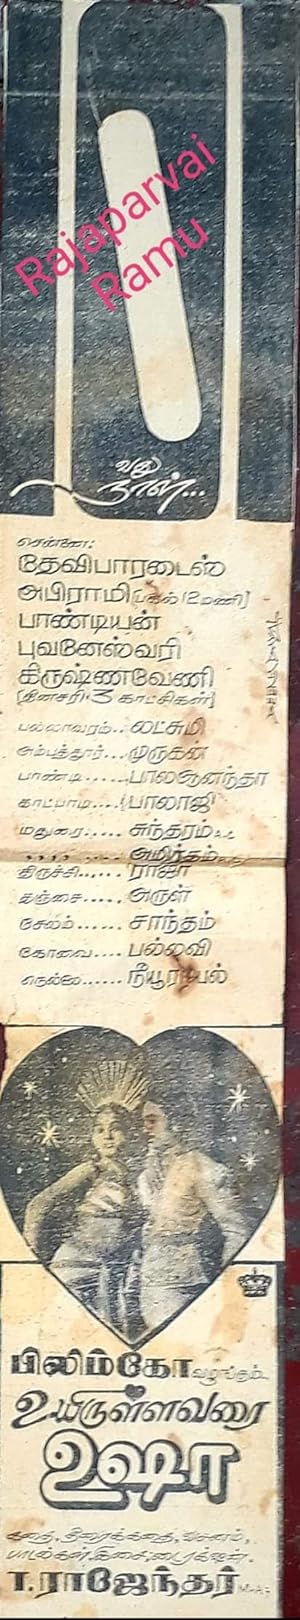 Rajaparvai
Ramu
வரு
நாள்...
சென்னை:
தேவிபாரடைஸ்
அபிராமி (பகல் 12 மணி)
பாண்டியன்
புவனேஸ்வரி
கிருஷ்ணவேணி
(தினசரி 3 காட்சிகள்)
பல்லாவரம்.. லட்சுமி
அம்பத்தூர்... முருகன்
பாண்டி...... பாலஆனந்தா
காட்பாடி.... பாலாஜி
மதுரை..... சுந்தரம்
,,,, ..... அமிர்தம்
திருச்சி....... ராஜா
தஞ்சை..... அருள்
சேலம்...... சாந்தம்
கோவை.... பல்லவி
நெல்லை......
பிலிம்கோ வழங்கும்..
உயிருள்ளவரை
உஷா
கதை, திரைக்கதை, வசனம்,
பாடல்கள், இசை, டைரக்ஷன்.
T. ராஜேந்தர் M.A.